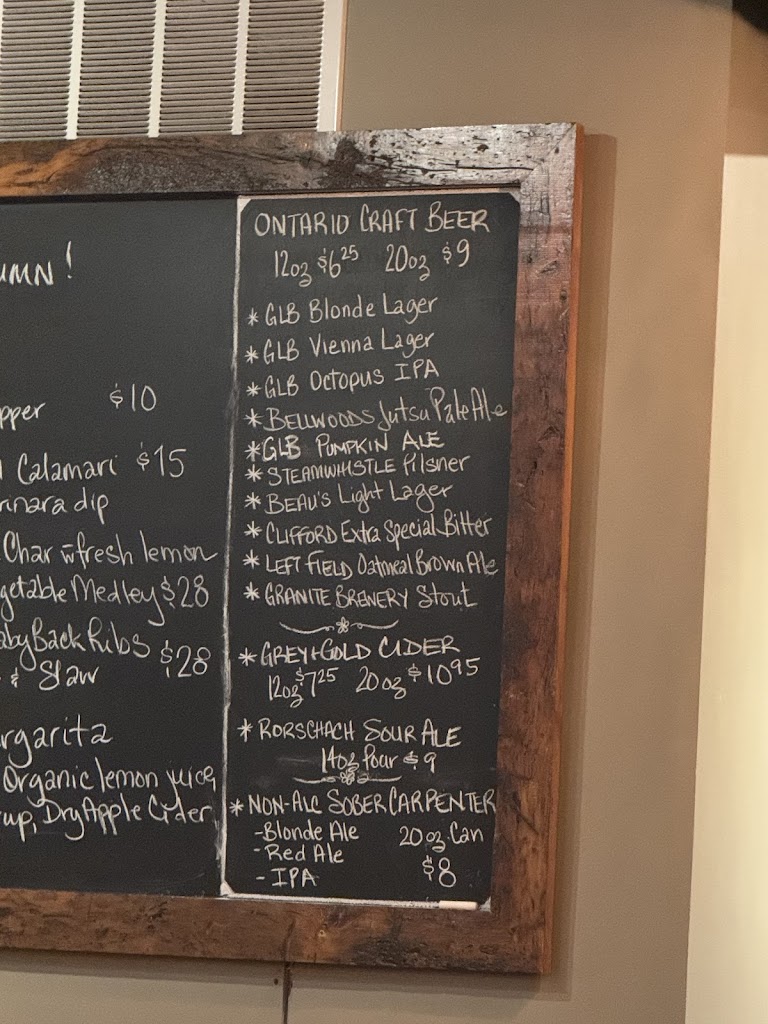 UMN!
$10
Calamari $15
dip
Char w fresh lemon
Medley $28
Back Ribs
& Slaw $28
Organic lemon juice,
Dry Apple Cider
ONTARIO CRAFT BEER
12oz $6.25 20oz $9
* GLB Blonde Lager
* GLB Vienna Lager
* GLB Octopus IPA
* BELLWOODS Jutsu Pale Ale
* GLB PUMPKIN ALE
* STEAMWHISTLE Pilsner
* BEAU'S Light Lager
* CLIFFORD Extra Special Bitter
* LEFT FIELD Oatmeal Brown Ale
* GRANITE BREWERY Stout
* GREY+GOLD CIDER
12oz $7.25 20oz $10.95
* RORSCHACH SOUR ALE
14oz Pour $9
* NON-ALC SOBER CARPENTER
- Blonde Ale 20oz Can
- Red Ale
- IPA $8